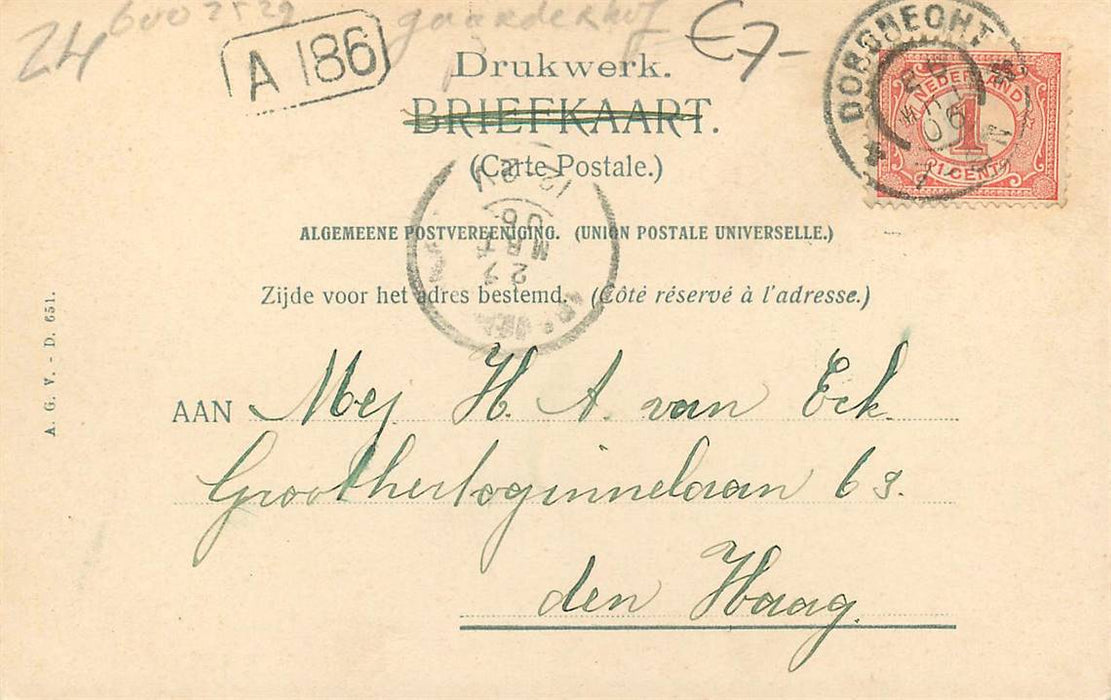 24 6002529 gaardeshof €7-
A 186
Drukwerk.
BRIEFKAART.
(Carte Postale.)
ALGEMEENE POSTVEREENIGING. (UNION POSTALE UNIVERSELLE.)
Zijde voor het adres bestemd. (Côté réservé à l'adresse.)
AAN Mej H. A. van Eck.
Groothertoginnelaan 63.
den Haag.
A. G. V. - D. 651.
DORDRECHT
NEDERLAND
1
1 CENT
27
MRT
06